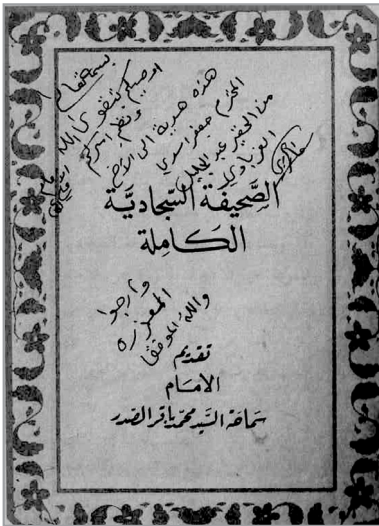 بسمه تعالى
اوصيكم بتقوى الله
ونظم امركم
هذه هدية الى الأخ
المحترم جعفر اسدي
من الحقير عبد الجليل
الصحيفة السجادية
الكاملة
وأرجوا
المعذرة
والله الموفق
تقديم
الامام
سماحة السيد محمد باقر الصدر